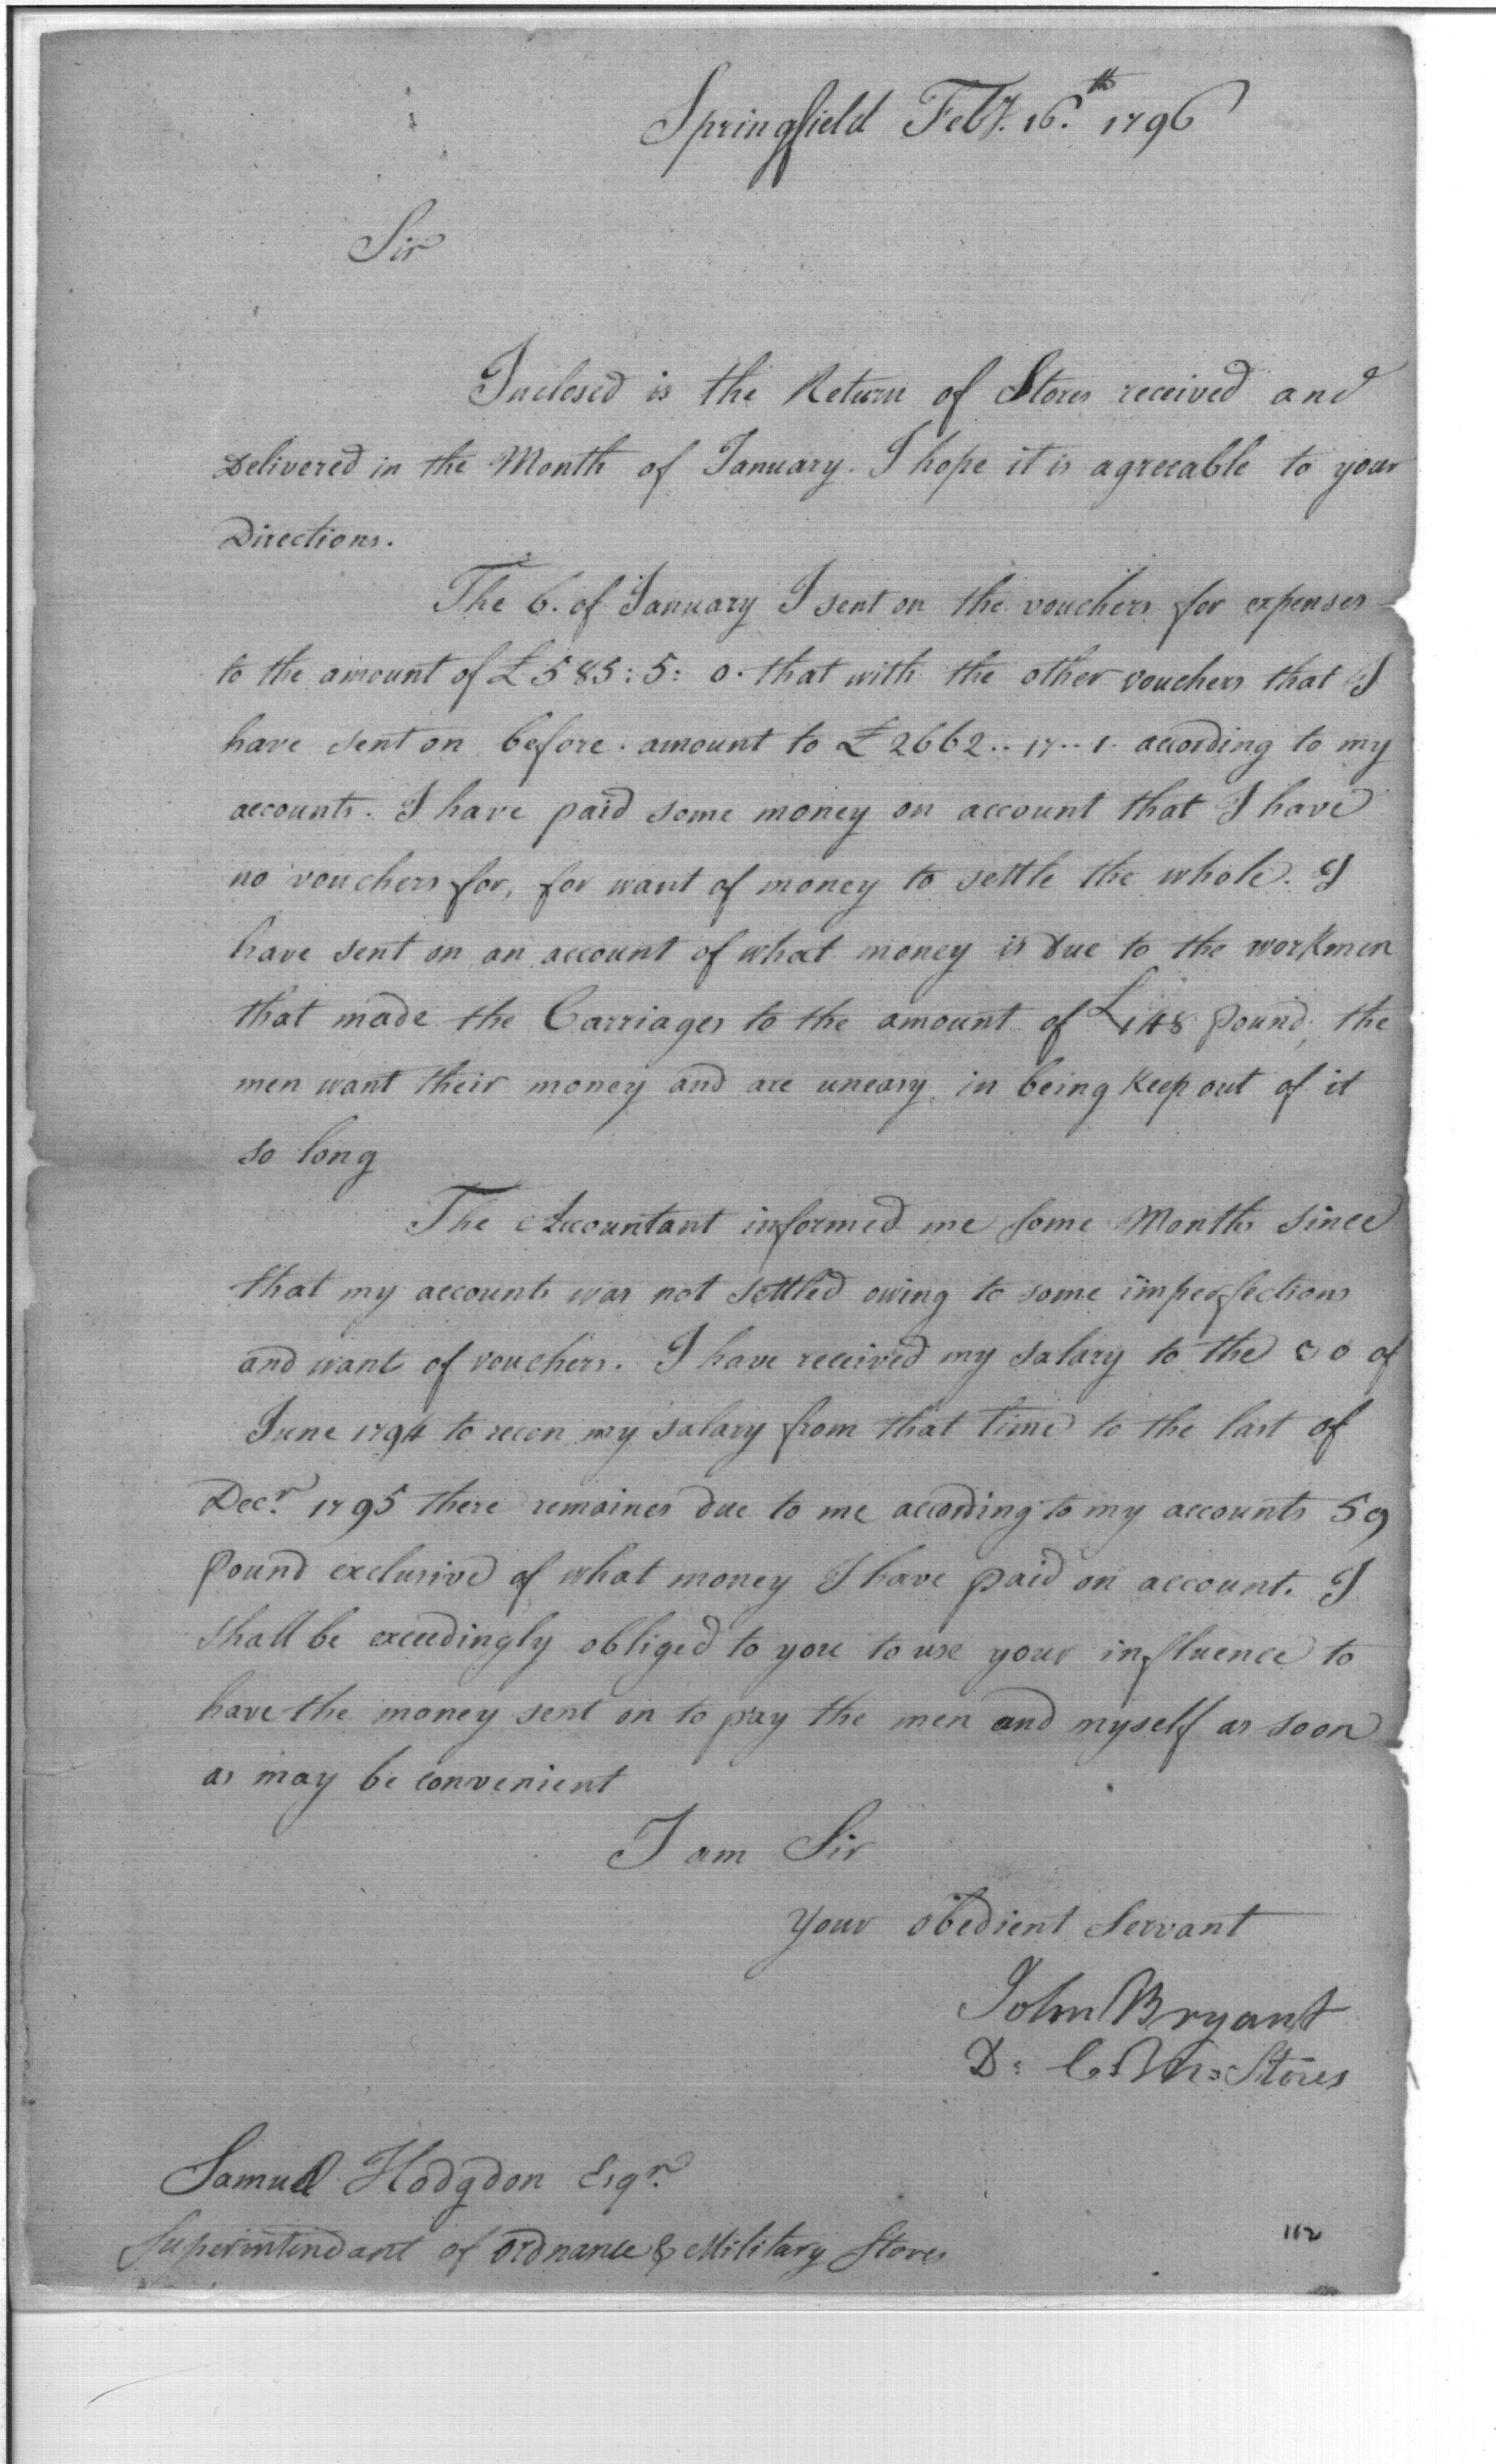 Springfield Feby. 16th. 1796
Sir
Inclosed is the Return of Stores received and
Delivered in the Month of January. I hope it is agreeable to your
Directions.
The 6. of January I sent on the vouchers for expenses
to the amount of £585:5:0. that with the other vouchers that I
have sent on before. amount to £2662..17..1. acording to my
accounts. I have paid some money on account that I have
no vouchers for, for want of money to settle the whole. I
have sent on an account of what money is due to the workmen
that made the Carriages to the amount of £148 pound, the
men want their money and are uneasy in being Keep out of it
so long
The Accountant informed me some Months since
that my accounts was not settled owing to some imperfections
and want of vouchers. I have received my salary to the 30 of
June 1794 to recon my salary from that time to the last of
Decr. 1795 there remaines due to me according to my accounts 59
pound exclusive of what money I have paid on account. I
shall be exceedingly obliged to you to use your influence to
have the money sent on to pay the men and myself as soon
as may be convenient
I am Sir
your obedient Servant
John Bryant
D: C: M: Stores
Samuel Hodgdon Esqr.
Superintendant of Ordnance & Military Stores
112